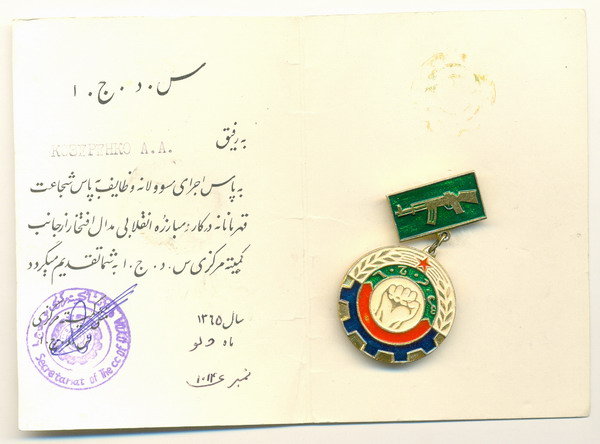 س . د . ج . ا
به رفیق
КУЗЕРЕНКО А.А.
به پاس اجرای مسوولانه وظایف به پاس شجاعت
قهرمانانه در کار و مبارزه انقلابی مدال افتخار از جانب
کمیته مرکزی س . د . ج . ا به شما تقدیم میگردد
سال ۱۳۶۵
ماه دلو
نمبر ۱۰۱۴۶
Secretariat of The cc of DYOA